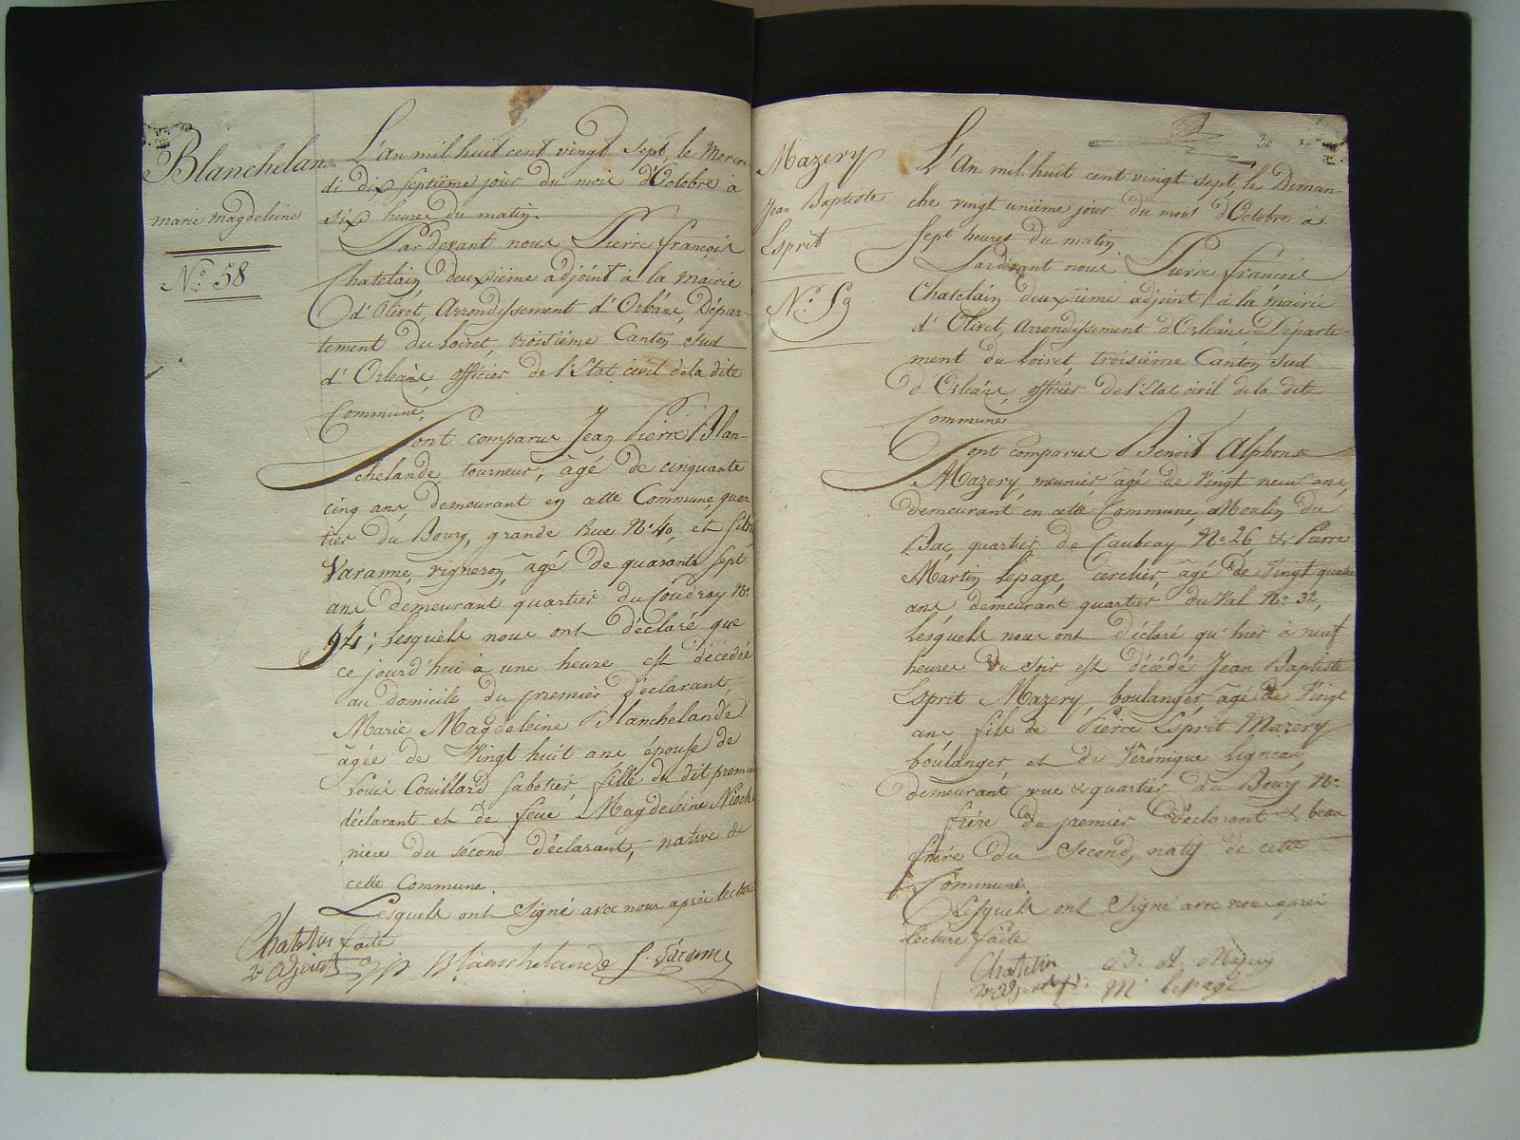 Blanchelan
marie magdeleine
N.° 58
L'an mil huit cent vingt sept, le mercre
di dix septième jour du mois d'Octobre à
six heures du matin.
Pardevant nous Pierre françois
Chatelain deuxième adjoint à la mairie
d'Olivet, Arrondissement d'Orléans, Dépar-
tement du Loiret, troisième Canton sud
d'Orléans, officier de l'Etat civil de la dite
Commune.
Sont comparus Jean Pierre Blan-
chelande tourneur, âgé de cinquante
cinq ans, demeurant en cette Commune, quar
tier du Bourg, grande Rue N.° 40, et
Varanne, vigneron, âgé de quarante sept
ans demeurant quartier du Coudray N.°
94; lesquels nous ont déclaré que
ce jourd'hui à une heure est décédée
au domicile du premier déclarant,
Marie Magdeleine Blanchelande
âgée de Vingt huit ans épouse de
Louis Couillard sabotier, fille du dit premier
déclarant et de feue Magdeleine
niece du second déclarant, native de
cette Commune.
Lesquels ont signé avec nous après lecture
faite
Chatelain
2e Adjoint
JP Blanchelande S. Varanne
Mazery
Jean Baptiste
Esprit
N.° 59
L'An mil huit cent vingt sept, le Diman-
che vingt unième jour du mois d'Octobre à
sept heures du matin
Pardevant nous Pierre françois
Chatelain deuxième adjoint à la mairie
d'Olivet, Arrondissement d'Orléans Départe-
ment du Loiret, troisième Canton sud
d'Orléans, officier de l'Etat civil de la dite
Commune
Sont comparus Benoit Alphonse
Mazery, meunier, âgé de Vingt neuf ans,
demeurant en cette Commune, Moulin du
Bac, quartier de Caubray N.° 26 & Pierre
Martin Lepage, cerclier, âgé de Vingt quatre
ans demeurant quartier du Val N.° 32,
Lesquels nous ont déclaré qu'hier à neuf
heures du soir est décédé Jean Baptiste
Esprit Mazery, boulanger, âgé de Vingt
ans fils de Pierre Esprit Mazery
boulanger, et de Véronique Ligneau,
demeurant, rue & quartier du Bourg N.°
frère du premier Déclarant & beau
frère du Second, natif de cette
Commune.
Lesquels ont Signé avec nous après
lecture faite
Chatelain
2e Adjoint
B. A. Mazery
M Lepage